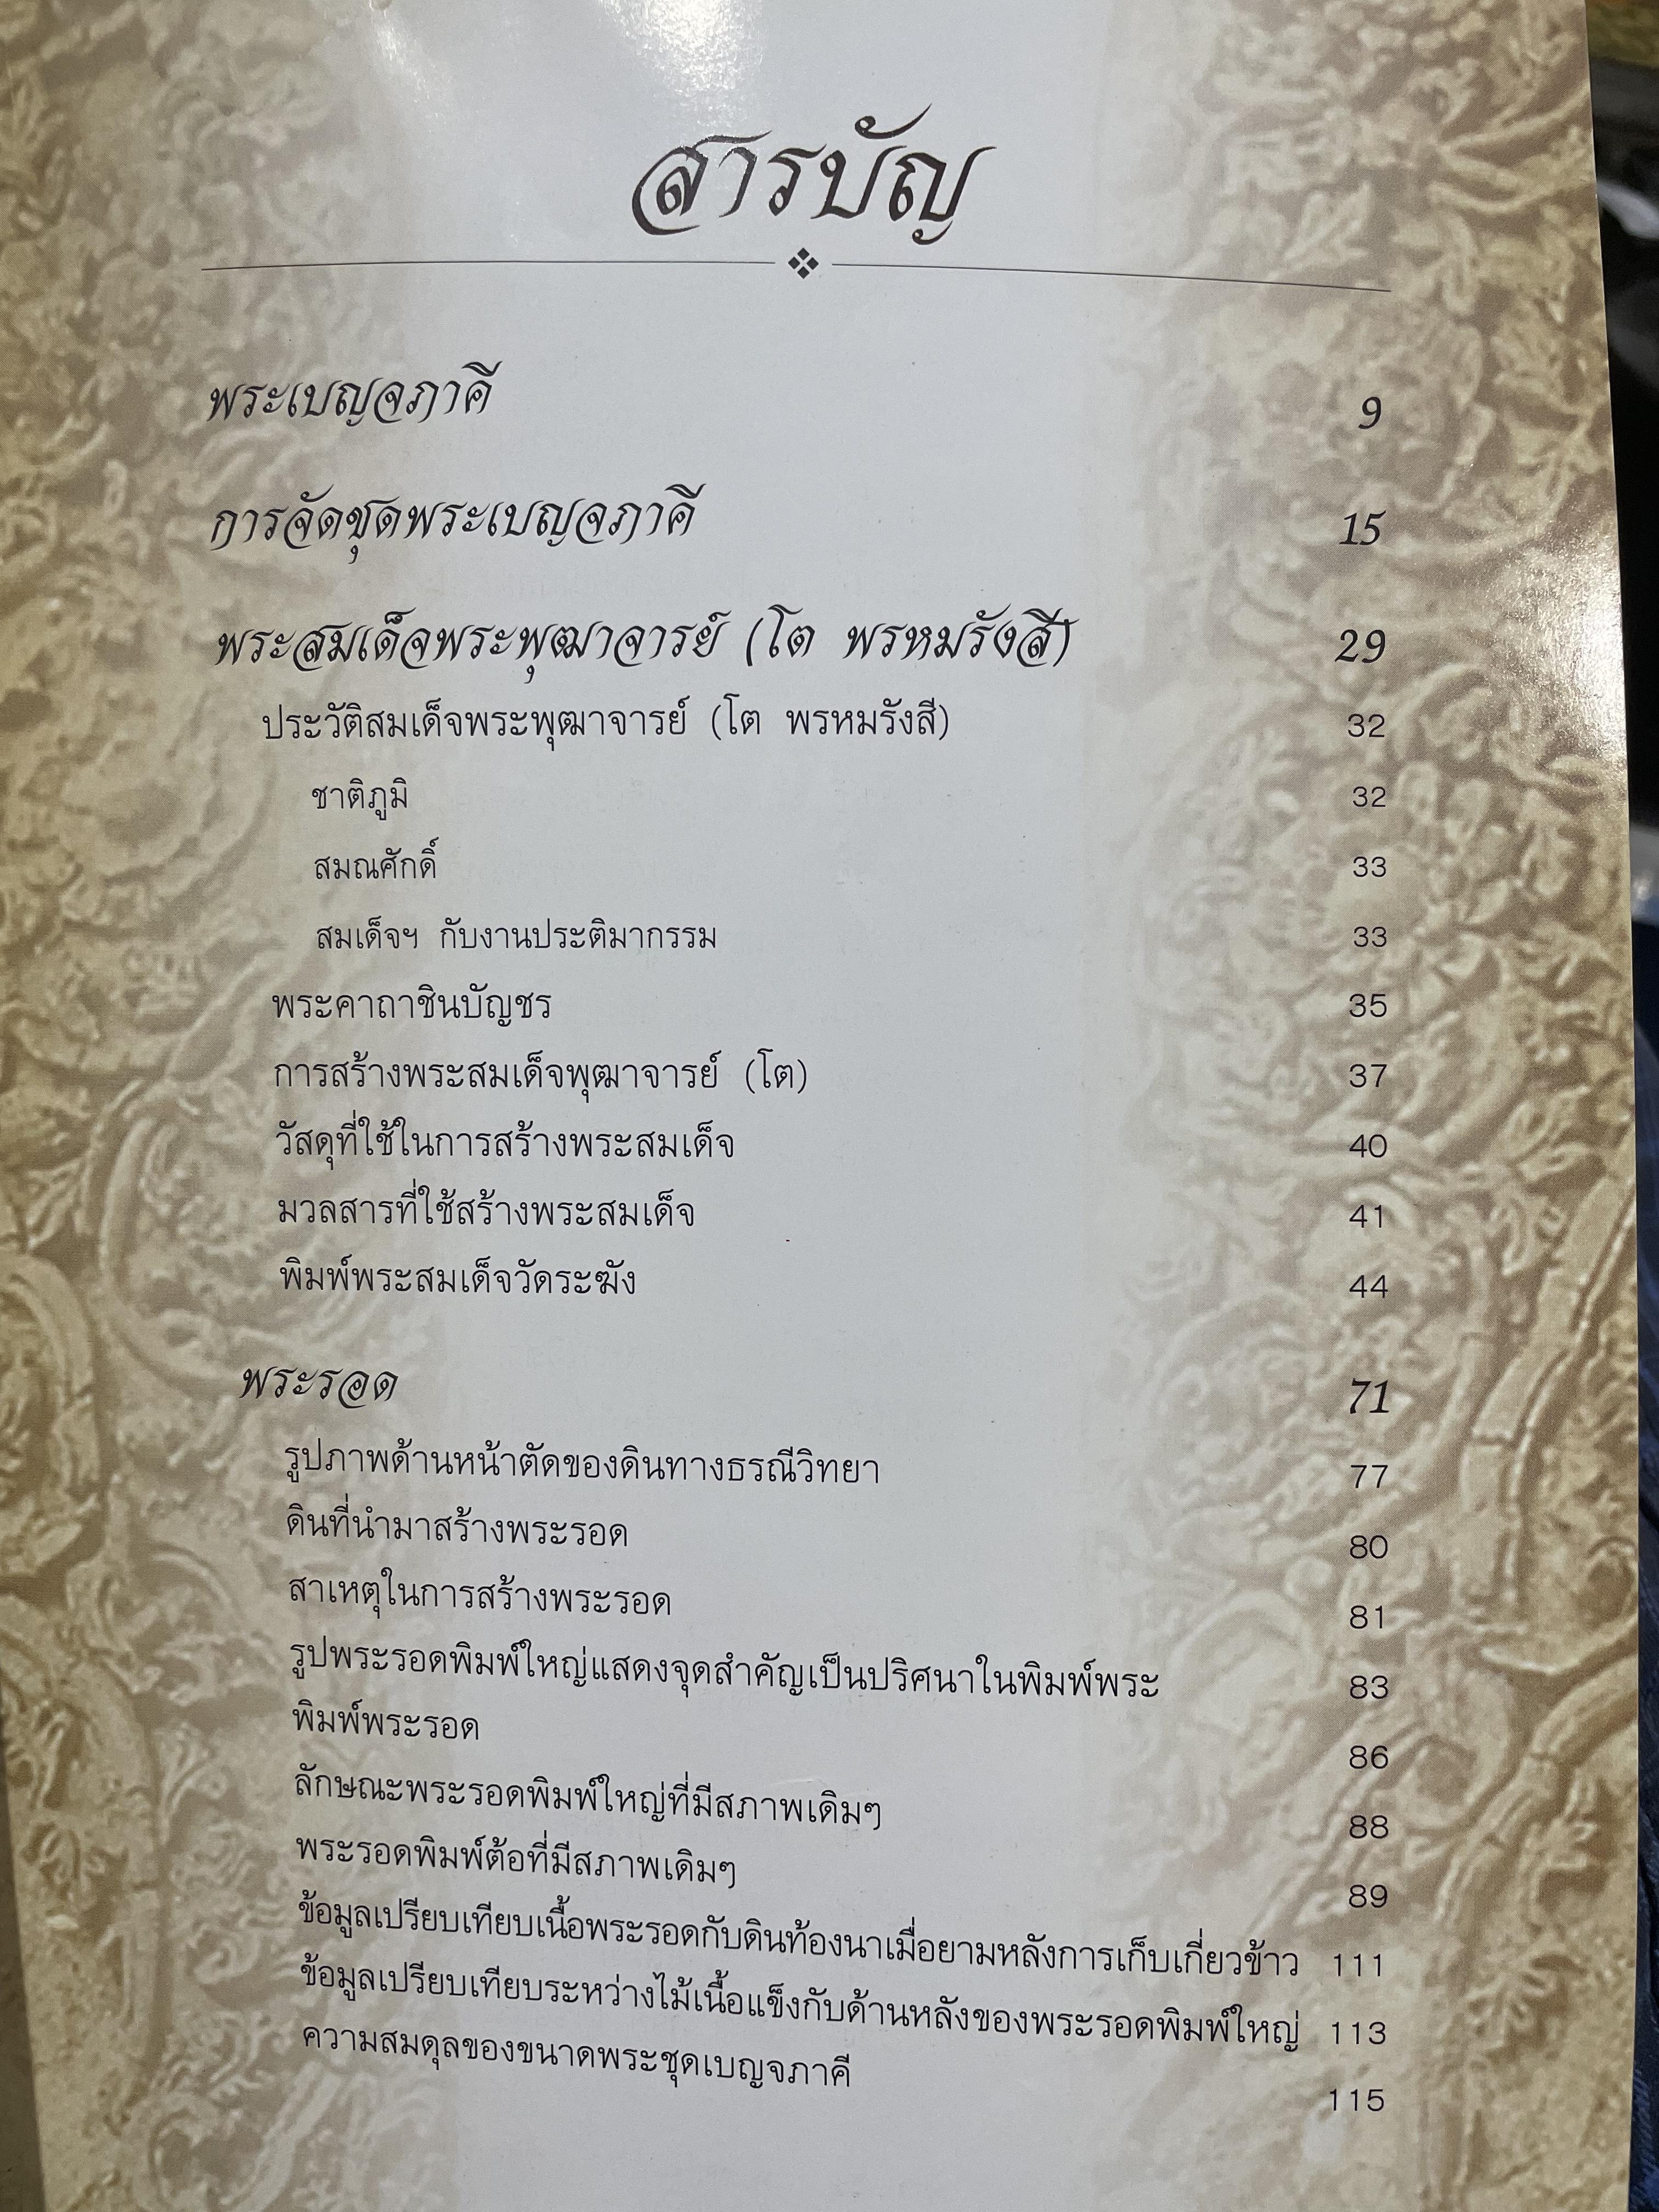 สารบัญ
พระเบญจภาคี 9
การจัดชุดพระเบญจภาคี 15
พระสมเด็จพระพุฒาจารย์ (โต พรหมรังสี) 29
ประวัติสมเด็จพระพุฒาจารย์ (โต พรหมรังสี) 32
ชาติภูมิ 32
สมณศักดิ์ 33
สมเด็จฯ กับงานประติมากรรม 33
พระคาถาชินบัญชร 35
การสร้างพระสมเด็จพุฒาจารย์ (โต) 37
วัสดุที่ใช้ในการสร้างพระสมเด็จ 40
มวลสารที่ใช้สร้างพระสมเด็จ 41
พิมพ์พระสมเด็จวัดระฆัง 44
พระรอด 71
รูปภาพด้านหน้าตัดของดินทางธรณีวิทยา 77
ดินที่นำมาสร้างพระรอด 80
สาเหตุในการสร้างพระรอด 81
รูปพระรอดพิมพ์ใหญ่แสดงจุดสำคัญเป็นปริศนาในพิมพ์พระ 83
พิมพ์พระรอด 86
ลักษณะพระรอดพิมพ์ใหญ่ที่มีสภาพเดิมๆ 88
พระรอดพิมพ์ต้อที่มีสภาพเดิมๆ 89
ข้อมูลเปรียบเทียบเนื้อพระรอดกับดินท้องนาเมื่อยามหลังการเก็บเกี่ยวข้าว 111
ข้อมูลเปรียบเทียบระหว่างไม้เนื้อแข็งกับด้านหลังของพระรอดพิมพ์ใหญ่ 113
ความสมดุลของขนาดพระชุดเบญจภาคี 115